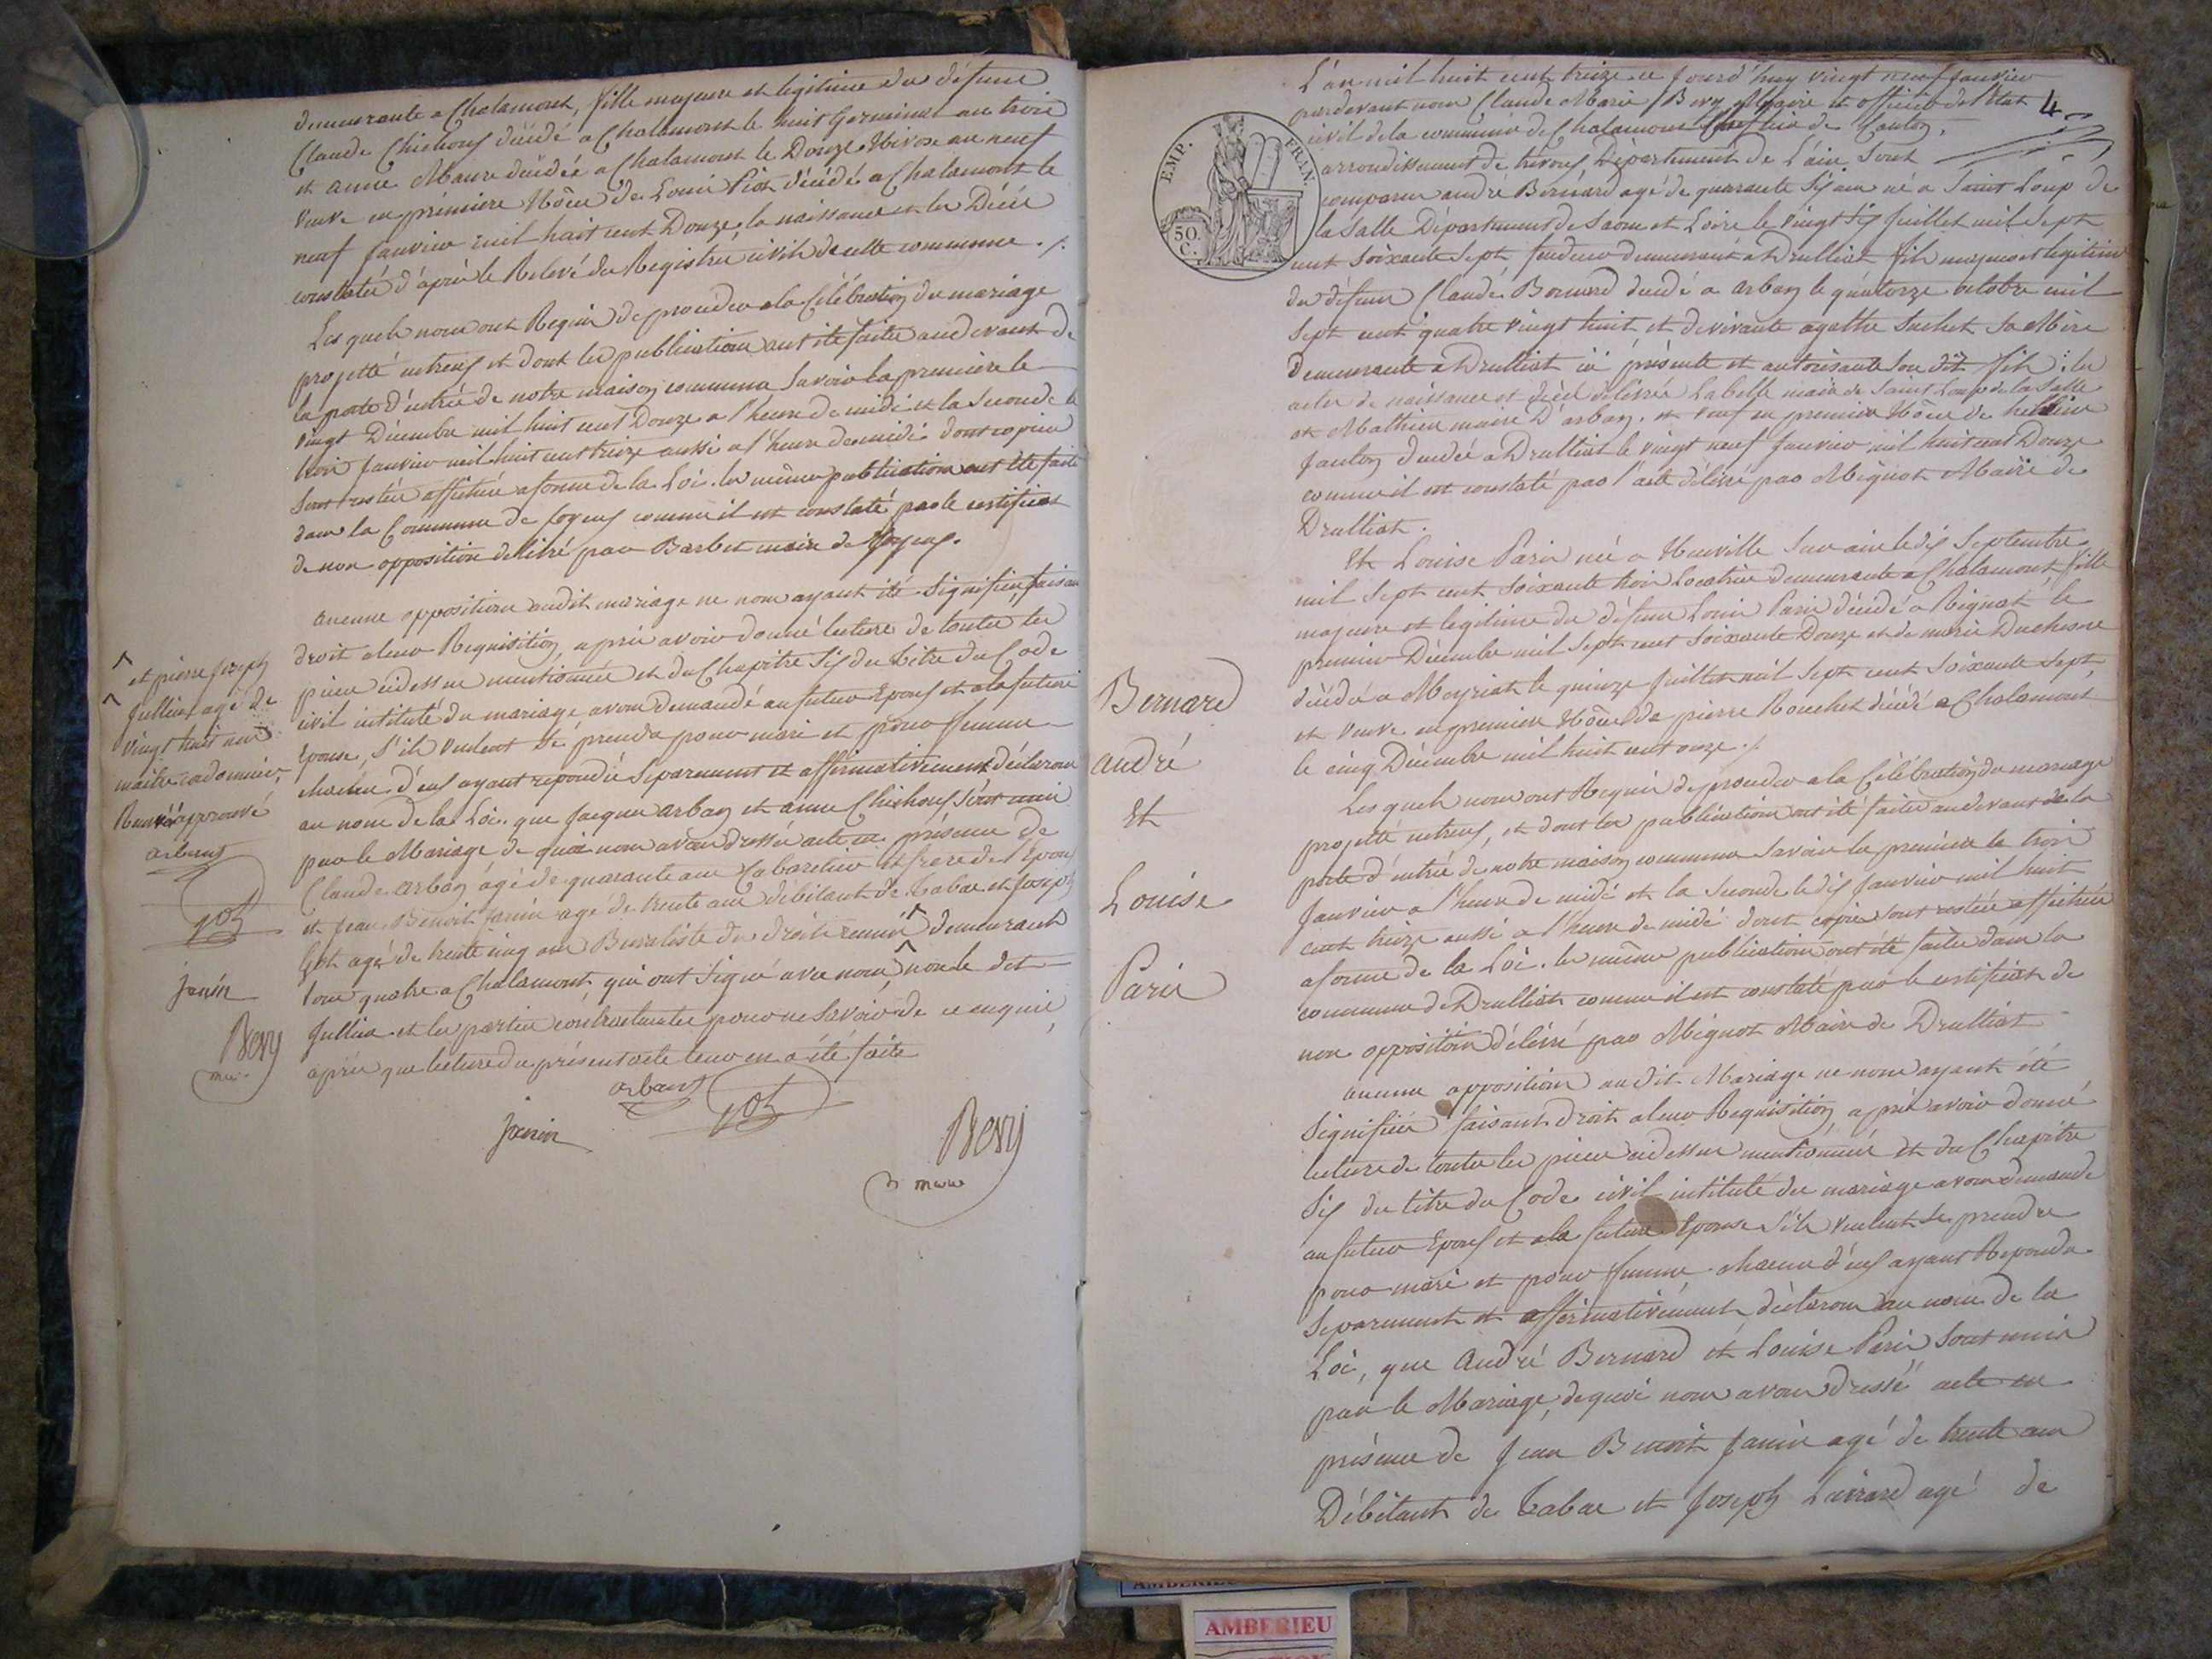 demeurante a Chalamont, fille majeure et legitime du défunt
Claude Chichoux décédé a Chalamont le huit Germinal an trois
et anne Maure décédée a Chalamont le Douze Nivose an neuf
veuve en première Nôce de Louis Piot décédé a Chalamont le
neuf Janvier mil huit cent Douze, la naissance et les Décés
constatés d'après le Relevé du Registre civil de cette commune ./.
Les quels nous ont Requis de proceder a la Célébration du mariage
projetté entreux et dont les publications ont été faites audevant de
la porte d'entrée de notre maison commune Savoir la premiere le
vingt Décembre mil huit cent Douze a l'heure de midi et la Seconde le
trois Janvier mil huit cent treize aussi a l'heure de midi dont copies
Sont restées affichées a forme de la Loi. les mêmes publications ont été faites
dans la Commune de Joyeux comme il est constaté par le certificat
de non opposition délivré par Barbet maire de Joyeux.
aucune opposition audit mariage ne nous ayant été Signifiée, faisant
droit a leur Requisition, après avoir donné lecture de toutes les
pieces cidessus mentionnées et du Chapitre Six du titre du Code
civil intitulé du mariage avons Demandé au futur Epoux et a la future
Epouse, S'ils veulent Se prendre pour mari et pour femme
chacun d'eux ayant repondu Separement et affirmativement déclarons
au nom de la Loi. que Jacques arban et anne Chichoux Sont unis
par le Mariage de quoi nous avons dressé acte en présence de
Claude arban agé de quarante ans Cabaretier et frere de l'époux
et Jean Benoit Janin agé de trente ans débitant de Tabac et Joseph
Got agé de trente cinq ans Buraliste des droits reunis ^ demeurant
tous quatre a Chalamont qui ont Signé avec nous ^ non le dit
Jullien et les parties contractantes pour ne Savoir de ce enquis
après que lecture du présent acte leur en a été faite
arban
got
janin
Bery
maire
^ et pierre joseph
^ Jullien agé de
vingt huit ans
maitre cordonnier
Renvoi approuvé
arban
got
janin
Bery
4
EMP. FRAN.
50.
C.
L'an mil huit cent treize ce Jourd'huy vingt neuf Janvier
pardevant nous Claude Marie Bery Maire et officier de l'Etat
civil de la commune de Chalamont Chef lieu de Canton,
arrondissement de trevoux Département de l'ain Sont
comparus andré Bernard agé de quarante Six ans né a Saint Loup de
la Salle Département de Saone et Loire le vingt Six Juillet mil Sept
cent Soixante Sept demeurant a Druilliat fils majeur et legitime
du défunt Claude Bernard décédé a arban le quatorze octobre mil
Sept cent quatre vingt huit et de vivante agathe Suchet Sa Mère
Demeurante a Druilliat ici présente et autorisante Son dit fils : les
actes de naissance et décés délivrés Labelle maire de Saint Loup de la Salle
et Mathieu maire D'arban. et veuf en premiere Nôce de
décédée a Druilliat le vingt neuf Janvier mil huit cent Douze
comme il est constaté par l'acte délivré par Mignot Maire de
Druilliat.
Et Louise Paris née a Neuville Sur ain le dix Septembre
mil Sept cent Soixante trois Locatrice demeurante a Chalamont, fille
majeure et legitime du défunt Louis Paris décédé a Rignat le
premier Décembre mil Sept cent Soixante Douze et de marie Duchesne
décédée a Meyriat le quinze Juillet mil Sept cent Soixante Sept,
et veuve en premiere Nôce de pierre Bouchet décédé a Chalamont
le cinq Décembre mil huit cent onze ./.
Les quels nous ont Requis de proceder a la Célébration du mariage
projetté entreux, et dont les publications ont été faites audevant de la
porte d'entrée de notre maison commune Savoir la premiere le trois
Janvier a l'heure de midi et la Seconde le dix Janvier mil huit
cent treize aussi a l'heure de midi dont copies Sont restées affichées
a forme de la Loi. les mêmes publications ont été faites dans la
commune de Druilliat comme il est constaté par le certificat de
non opposition délivré par Mignot Maire de Druilliat
aucune opposition audit Mariage ne nous ayant été
Signifiée faisant droit a leur Requisition, après avoir donné
lecture de toutes les pieces cidessus mentionnées et du Chapitre
Six du titre du Code civil intitulé du mariage avons demandé
au futur Epoux et a la future Epouse S'ils veulent Se prendre
pour mari et pour femme, chacun d'eux ayant Repondu
Separement et affirmativement déclarons au nom de la
Loi, que André Bernard et Louise Paris Sont unis
par le Mariage, de quoi nous avons dressé acte en
présence de Jean Benoit Janin agé de trente ans
Débitant de Tabac et Joseph Livrard agé de
Bernard
andré
Et
Louise
Paris
AMBERIEU
AMBERIEU